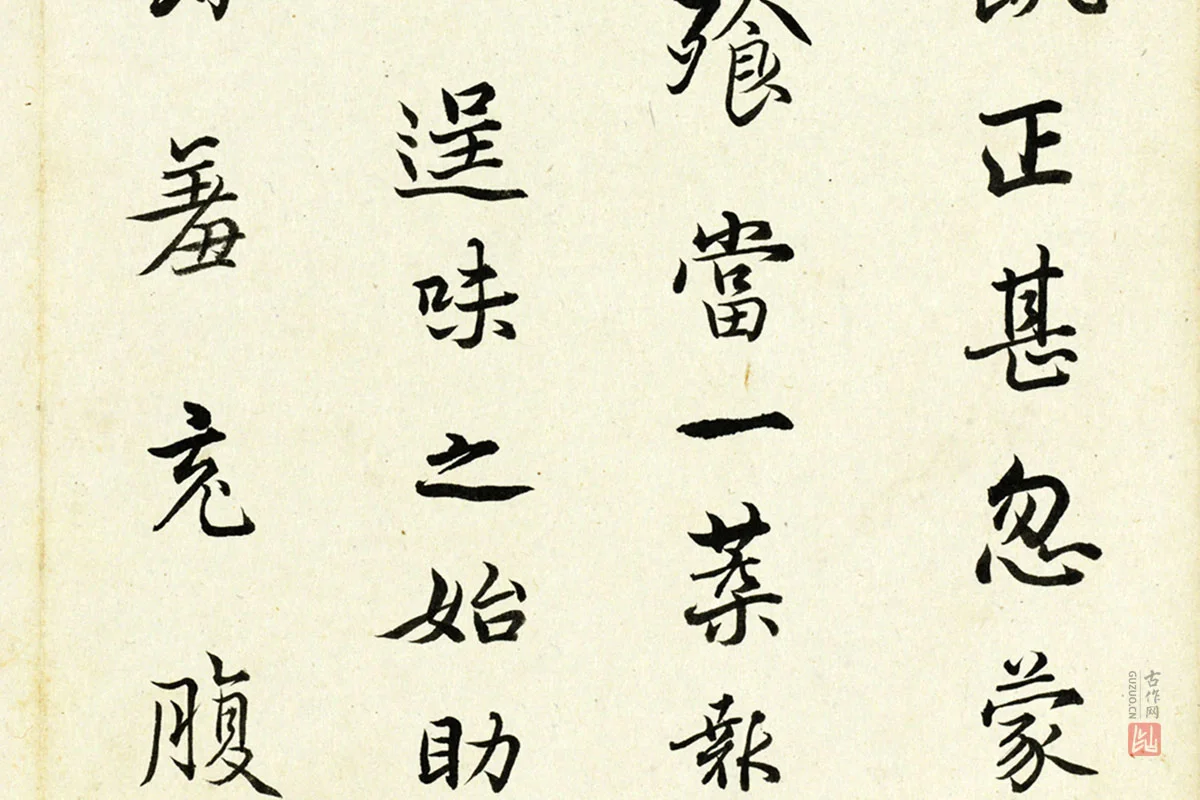 正甚忽蒙
飧當一葉報
逞味之始助
羞充腹
古作网
GUZUO.CN